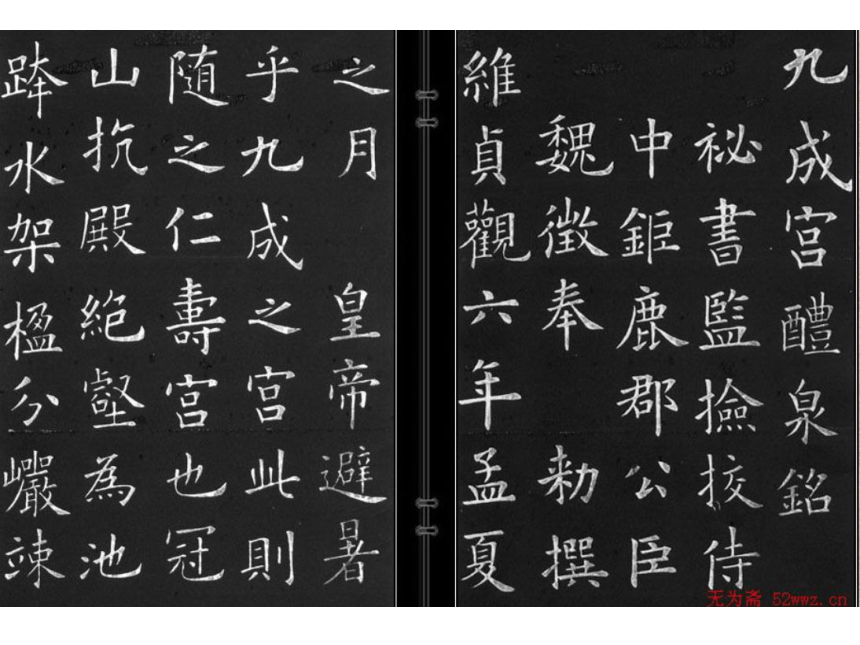 九成宮醴泉銘
祕書監撿挍侍
中鉅鹿郡公臣
魏徵奉 勑撰
維貞觀六年孟夏
之月 皇帝避暑
乎九成之宮此則
随之仁壽宮也冠
山抗殿絕壑為池
跨水架楹分巖竦
无为斋 52wwz.cn